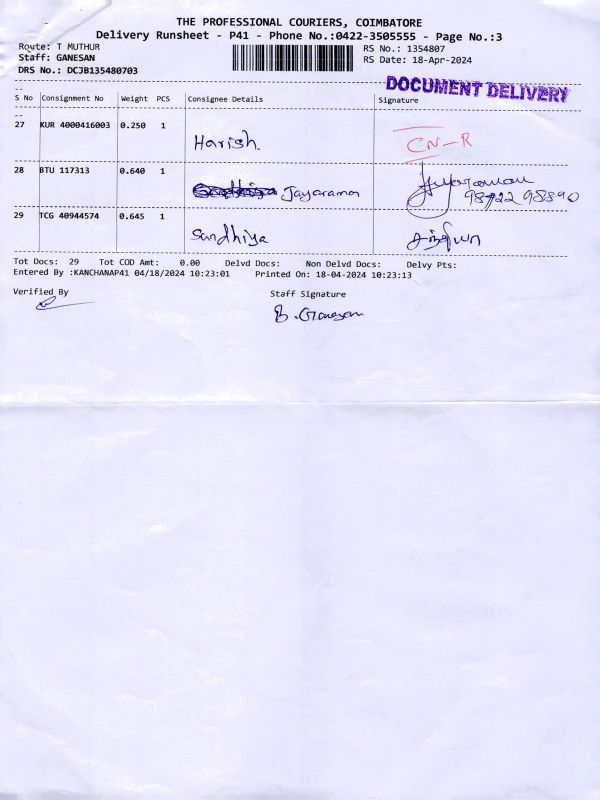 THE PROFESSIONAL COURIERS, COIMBATORE
Delivery Runsheet - P41 - Phone No.:0422-3505555 - Page No.:3
Route: T MUTHUR RS No.: 1354807
Staff: GANESAN RS Date: 18-Apr-2024
DRS No.: DCJB135480703
DOCUMENT DELIVERY
S No Consignment No Weight PCS Consignee Details Signature
27 KUR 4000416003 0.250 1 Harish. CN-R
28 BTU 117313 0.640 1 Jayaraman Jayaraman
98422 98890
29 TCG 40944574 0.645 1 Sandhiya சந்தியா
Tot Docs: 29 Tot COD Amt: 0.00 Delvd Docs: Non Delvd Docs: Delvy Pts:
Entered By :KANCHANAP41 04/18/2024 10:23:01 Printed On: 18-04-2024 10:23:13
Verified By Staff Signature
B. Ganesan